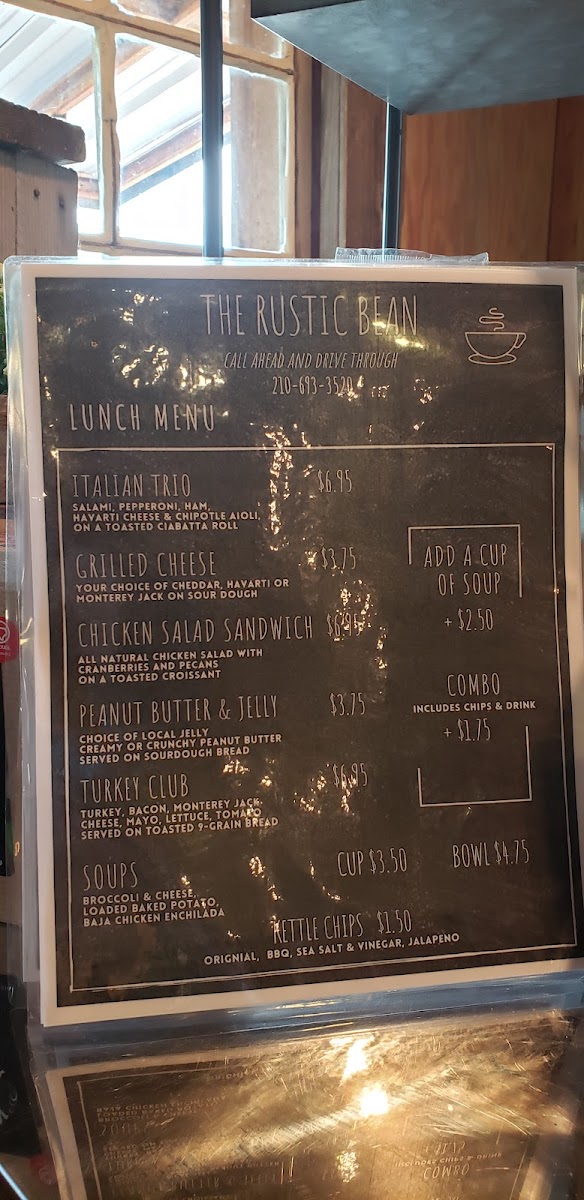 THE RUSTIC BEAN
CALL AHEAD AND DRIVE THROUGH
210-693-3520
LUNCH MENU
ITALIAN TRIO $6.95
SALAMI, PEPPERONI, HAM,
HAVARTI CHEESE & CHIPOTLE AIOLI,
ON A TOASTED CIABATTA ROLL
GRILLED CHEESE $3.75
YOUR CHOICE OF CHEDDAR, HAVARTI OR
MONTEREY JACK ON SOUR DOUGH
CHICKEN SALAD SANDWICH $6.95
ALL NATURAL CHICKEN SALAD WITH
CRANBERRIES AND PECANS
ON A TOASTED CROISSANT
PEANUT BUTTER & JELLY $3.75
CHOICE OF LOCAL JELLY
CREAMY OR CRUNCHY PEANUT BUTTER
SERVED ON SOURDOUGH BREAD
TURKEY CLUB $6.95
TURKEY, BACON, MONTEREY JACK
CHEESE, MAYO, LETTUCE, TOMATO
SERVED ON TOASTED 9-GRAIN BREAD
ADD A CUP
OF SOUP
+ $2.50
COMBO
INCLUDES CHIPS & DRINK
+ $1.75
SOUPS CUP $3.50 BOWL $4.75
BROCCOLI & CHEESE,
LOADED BAKED POTATO,
BAJA CHICKEN ENCHILADA
KETTLE CHIPS $1.50
ORIGNIAL, BBQ, SEA SALT & VINEGAR, JALAPENO